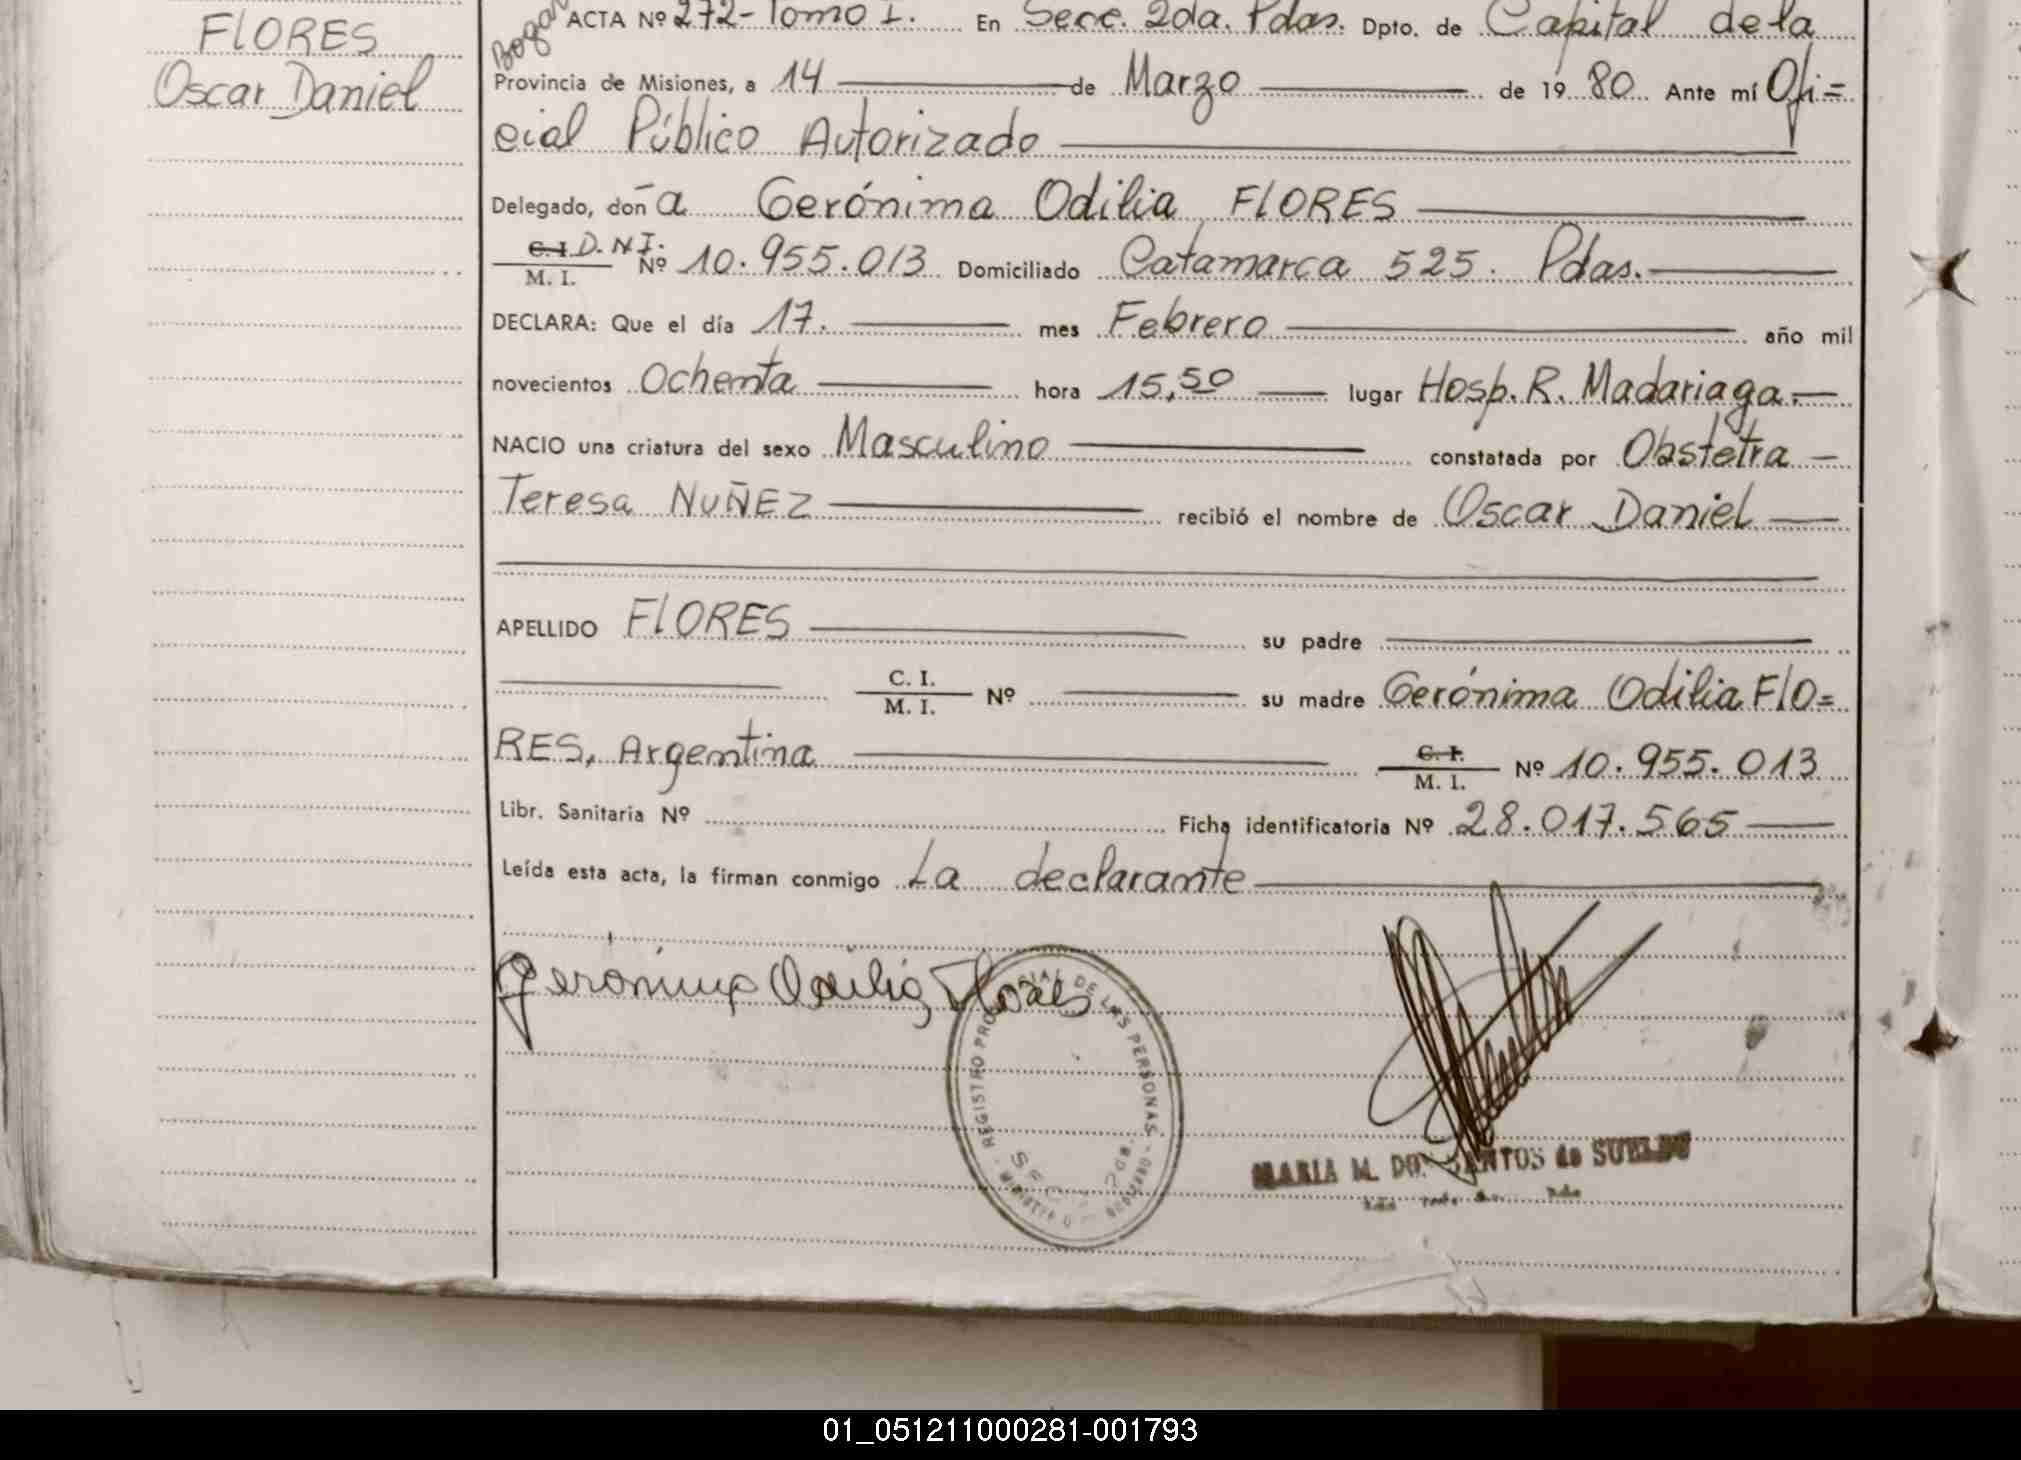 FLORES
Oscar Daniel
ACTA Nº 272- Tomo I. En Secc. 2da. Pdas. Dpto. de Capital de la
Provincia de Misiones, a 14 de Marzo de 19 80 Ante mí Ofi=
cial Público Autorizado
Delegado, don a Gerónima Odilia FLORES
C. I. D.N.I.
M. I. Nº 10.955.013 Domiciliado Catamarca 525. Pdas.
DECLARA: Que el día 17. mes Febrero año mil
novecientos Ochenta hora 15,50 lugar Hosp. R. Madariaga.
NACIO una criatura del sexo Masculino constatada por Obstetra
Teresa NUÑEZ recibió el nombre de Oscar Daniel
APELLIDO FLORES su padre
C. I.
M. I. Nº su madre Gerónima Odilia FLO=
RES, Argentina C. I.
M. I. Nº 10.955.013
Libr. Sanitaria Nº Ficha identificatoria Nº 28.017.565
Leída esta acta, la firman conmigo La declarante
Gerónima Odilia Flores
REGISTRO PROVINCIAL DE LAS PERSONAS
MARIA M. DOS SANTOS de SUELDO
01_051211000281-001793